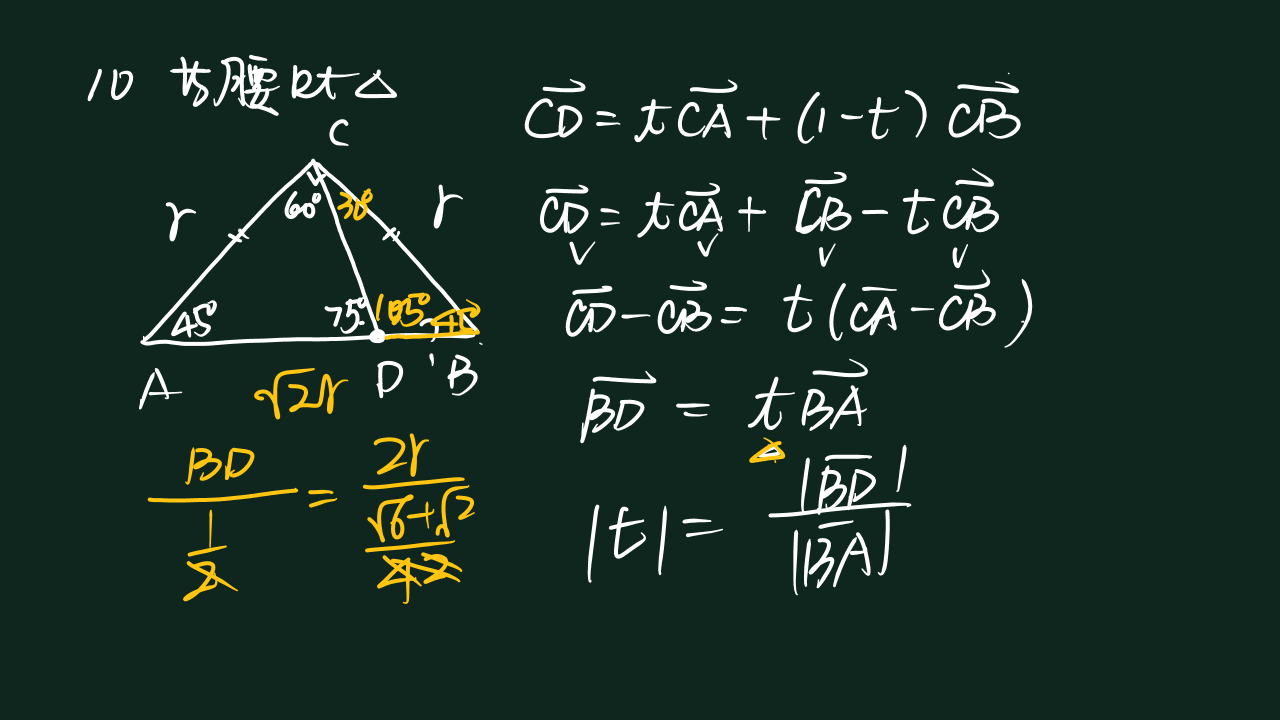 10 等腰Rt△
C
r
r
60°
30°
45°
75°
105°
A
D
B
√2r
BD/(1/2) = 2r/((√6+√2)/4)
CD = tCA + (1-t) CB
CD = tCA + CB - tCB
CD - CB = t(CA - CB)
BD = tBA
|t| = |BD|/|BA|